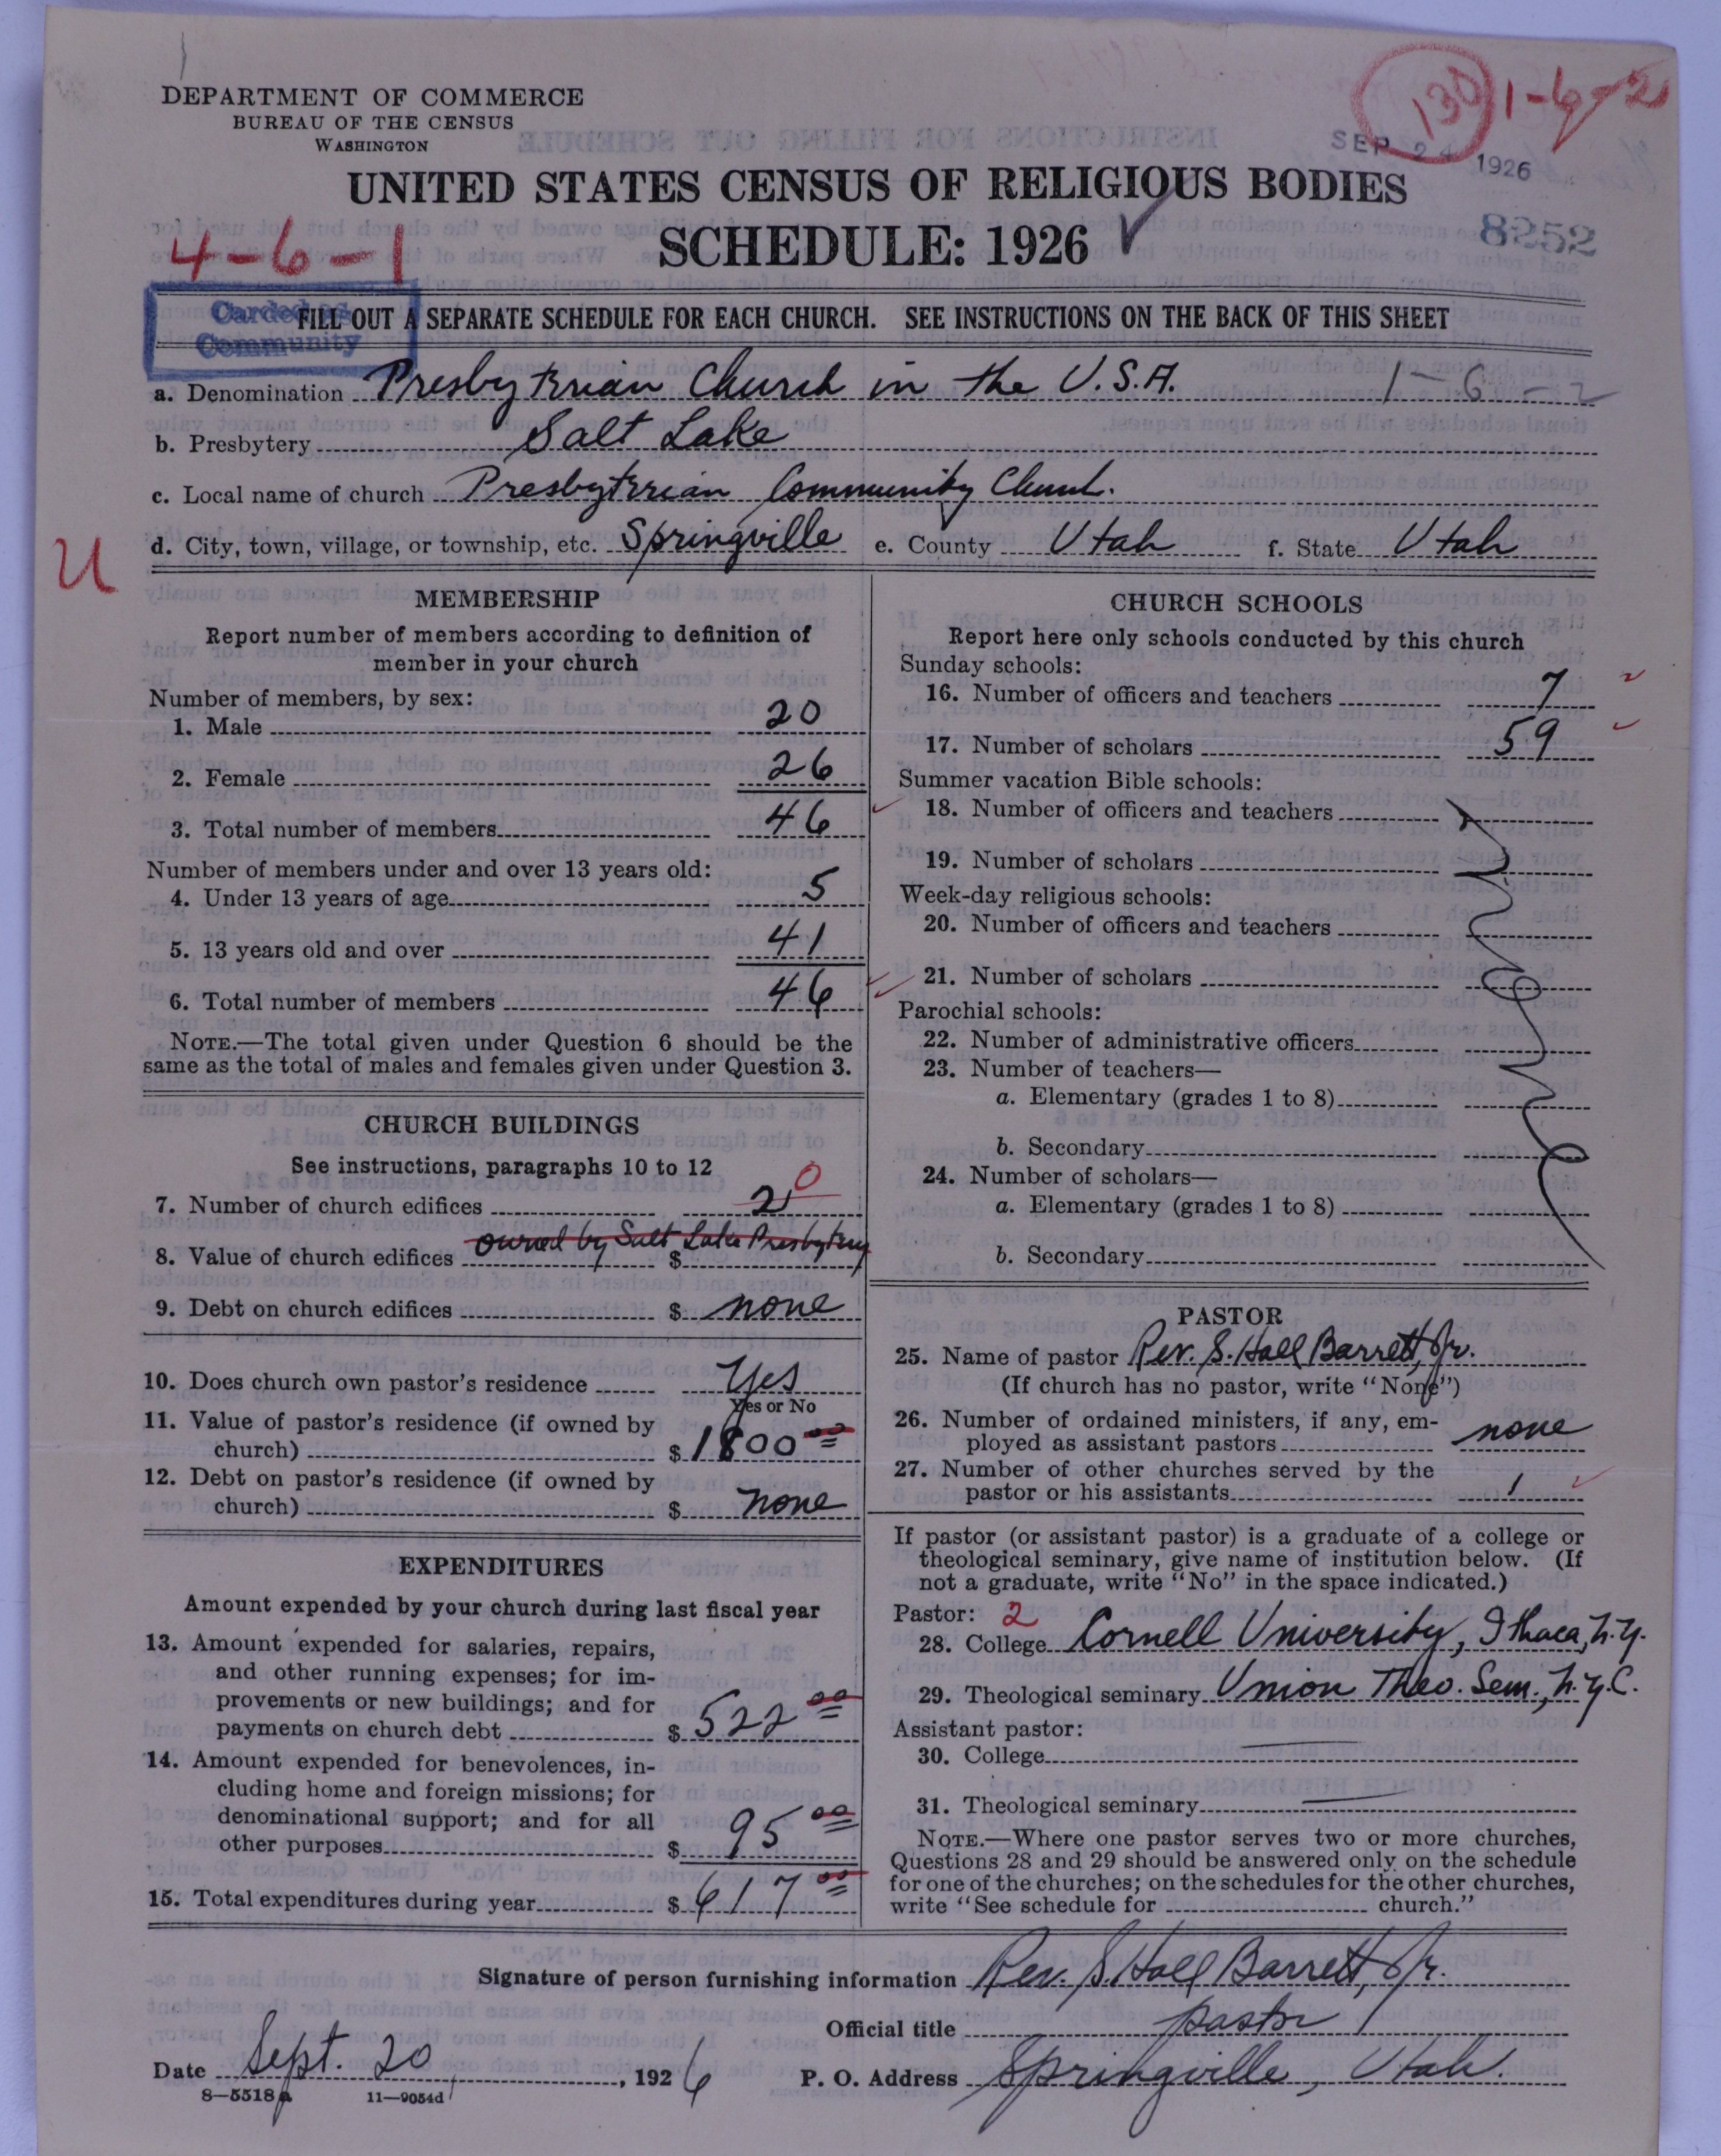 130 1-6-2
DEPARTMENT OF COMMERCE
BUREAU OF THE CENSUS
WASHINGTON
SEP 24 1926
UNITED STATES CENSUS OF RELIGIOUS BODIES
SCHEDULE: 1926
8252
4-6-1
Carded as
Community
FILL OUT A SEPARATE SCHEDULE FOR EACH CHURCH. SEE INSTRUCTIONS ON THE BACK OF THIS SHEET
a. Denomination Presbyterian Church in the U.S.A. 1-6-2
b. Presbytery Salt Lake
c. Local name of church Presbyterian Community Church.
d. City, town, village, or township, etc. Springville e. County Utah f. State Utah
U
MEMBERSHIP
Report number of members according to definition of
member in your church
Number of members, by sex:
1. Male 20
2. Female 26
3. Total number of members 46
Number of members under and over 13 years old:
4. Under 13 years of age 5
5. 13 years old and over 41
6. Total number of members 46
NOTE.—The total given under Question 6 should be the
same as the total of males and females given under Question 3.
CHURCH BUILDINGS
See instructions, paragraphs 10 to 12
7. Number of church edifices 2 0
owned by Salt Lake Presbytery
8. Value of church edifices $
9. Debt on church edifices $ none
10. Does church own pastor's residence Yes
Yes or No
11. Value of pastor's residence (if owned by
church) $ 1800 00
12. Debt on pastor's residence (if owned by
church) $ none
EXPENDITURES
Amount expended by your church during last fiscal year
13. Amount expended for salaries, repairs,
and other running expenses; for im-
provements or new buildings; and for
payments on church debt $ 522 00
14. Amount expended for benevolences, in-
cluding home and foreign missions; for
denominational support; and for all
other purposes $ 95 00
15. Total expenditures during year $ 617 00
CHURCH SCHOOLS
Report here only schools conducted by this church
Sunday schools:
16. Number of officers and teachers 7
17. Number of scholars 59
Summer vacation Bible schools:
18. Number of officers and teachers
19. Number of scholars
Week-day religious schools:
20. Number of officers and teachers
21. Number of scholars
Parochial schools:
22. Number of administrative officers
23. Number of teachers—
a. Elementary (grades 1 to 8)
b. Secondary
24. Number of scholars—
a. Elementary (grades 1 to 8)
b. Secondary
PASTOR
25. Name of pastor Rev. S. Hall Barrett, Jr.
(If church has no pastor, write "None")
26. Number of ordained ministers, if any, em-
ployed as assistant pastors none
27. Number of other churches served by the
pastor or his assistants 1
If pastor (or assistant pastor) is a graduate of a college or
theological seminary, give name of institution below. (If
not a graduate, write "No" in the space indicated.)
Pastor: 2
28. College Cornell University, Ithaca, N.Y.
29. Theological seminary Union Theo. Sem., N.Y.C.
Assistant pastor:
30. College
31. Theological seminary
NOTE.—Where one pastor serves two or more churches,
Questions 28 and 29 should be answered only on the schedule
for one of the churches; on the schedules for the other churches,
write "See schedule for church."
Signature of person furnishing information Rev. S. Hall Barrett, Jr.
Official title pastor
Date Sept. 20, 1926 P. O. Address Springville, Utah.
8-5518a 11-9054d